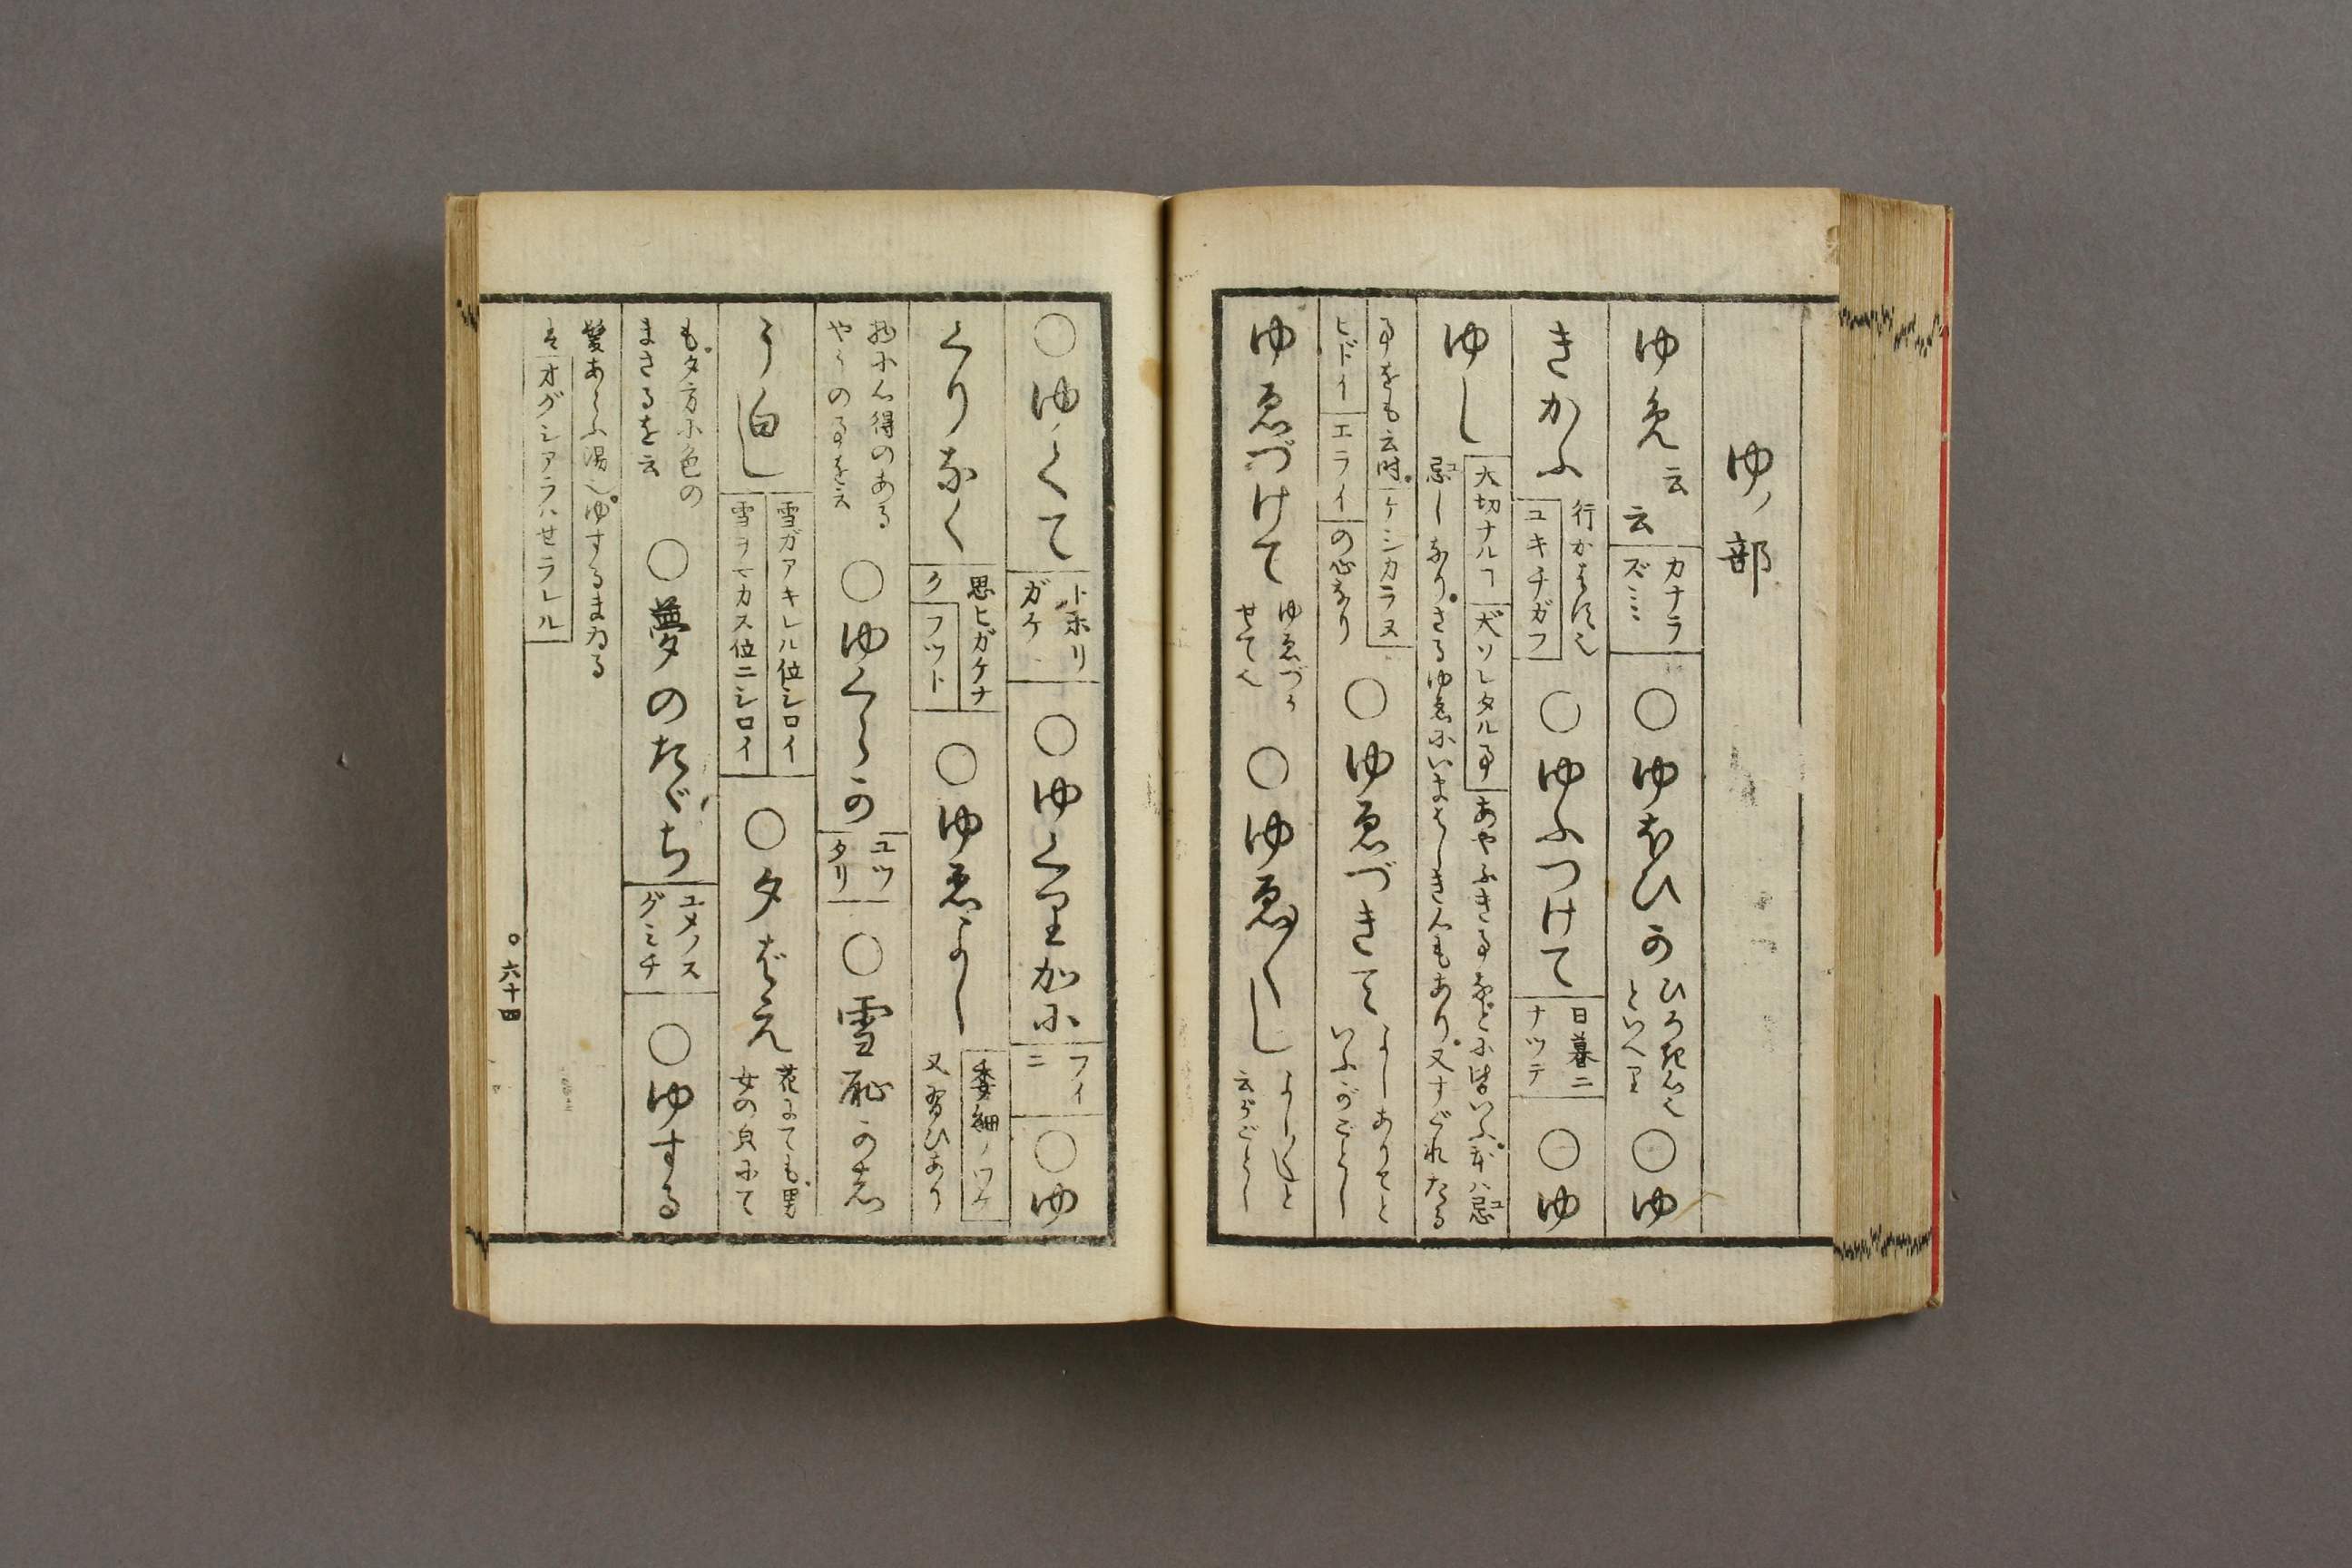 ゆノ部
ゆめ云云 カナラズミミ ○ゆほびか ひろき心也といへり ○ゆ
きかふ 行かはす也 ユキチガフ ○ゆふつけて 日暮ニナツテ ○ゆ
ゆし 大切ナルヿ 犬ソレタル事 あやふき事などに皆いふ 本ハ忌
忌しなり さるゆゑにいまはしき心もあり 又すぐれたる
事をも云時 ケシカラヌ ヒドイ エライ の心なり ○ゆゑづきて よしありてと いふがごとし
ゆゑづけて ゆゑづかせて也 ○ゆゑ〳〵し よし〳〵しと云がごとし
○ゆくて トホリガケ ○ゆくりかに フイニ ○ゆ
くりなく 思ヒガケナク フツト ○ゆゑよし 委細ノワケ 又習ひあり
物に心得のあるやうの事を云 ○ゆくらか ユツタリ ○雪恥かし
う白し 雪ガアキレル位シロイ 雪ヲマカス位ニシロイ ○夕ばえ 花にても男女の皃にて
も夕方に色のまさるを云 ○夢のたゞち ユメノスグミチ ○ゆする
髪あらふ湯也 ゆするまゐる
は オグシアラハせラレル
六十四